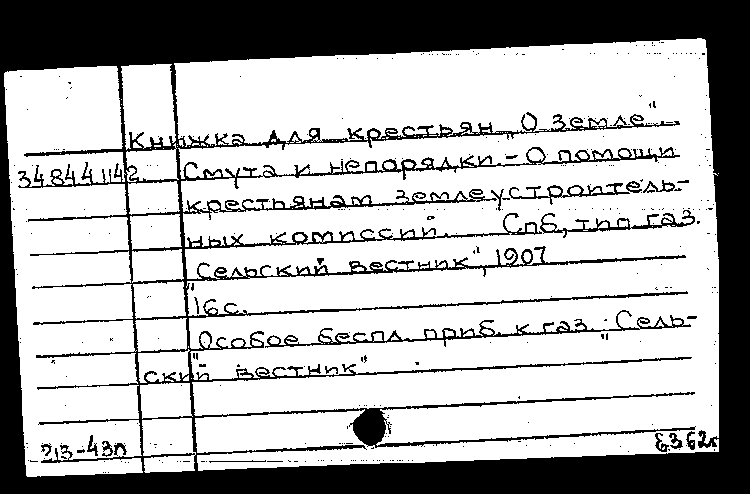 Книжка для крестьян „О земле"..
34844 1142. Смута и непорядки. - О помощи
крестьянам землеустроитель-
ных комиссий. Спб, тип. газ.
"Сельский вестник", 1907
16 с.
Особое беспл. приб. к газ. „Сель-
ский вестник"
213-43л